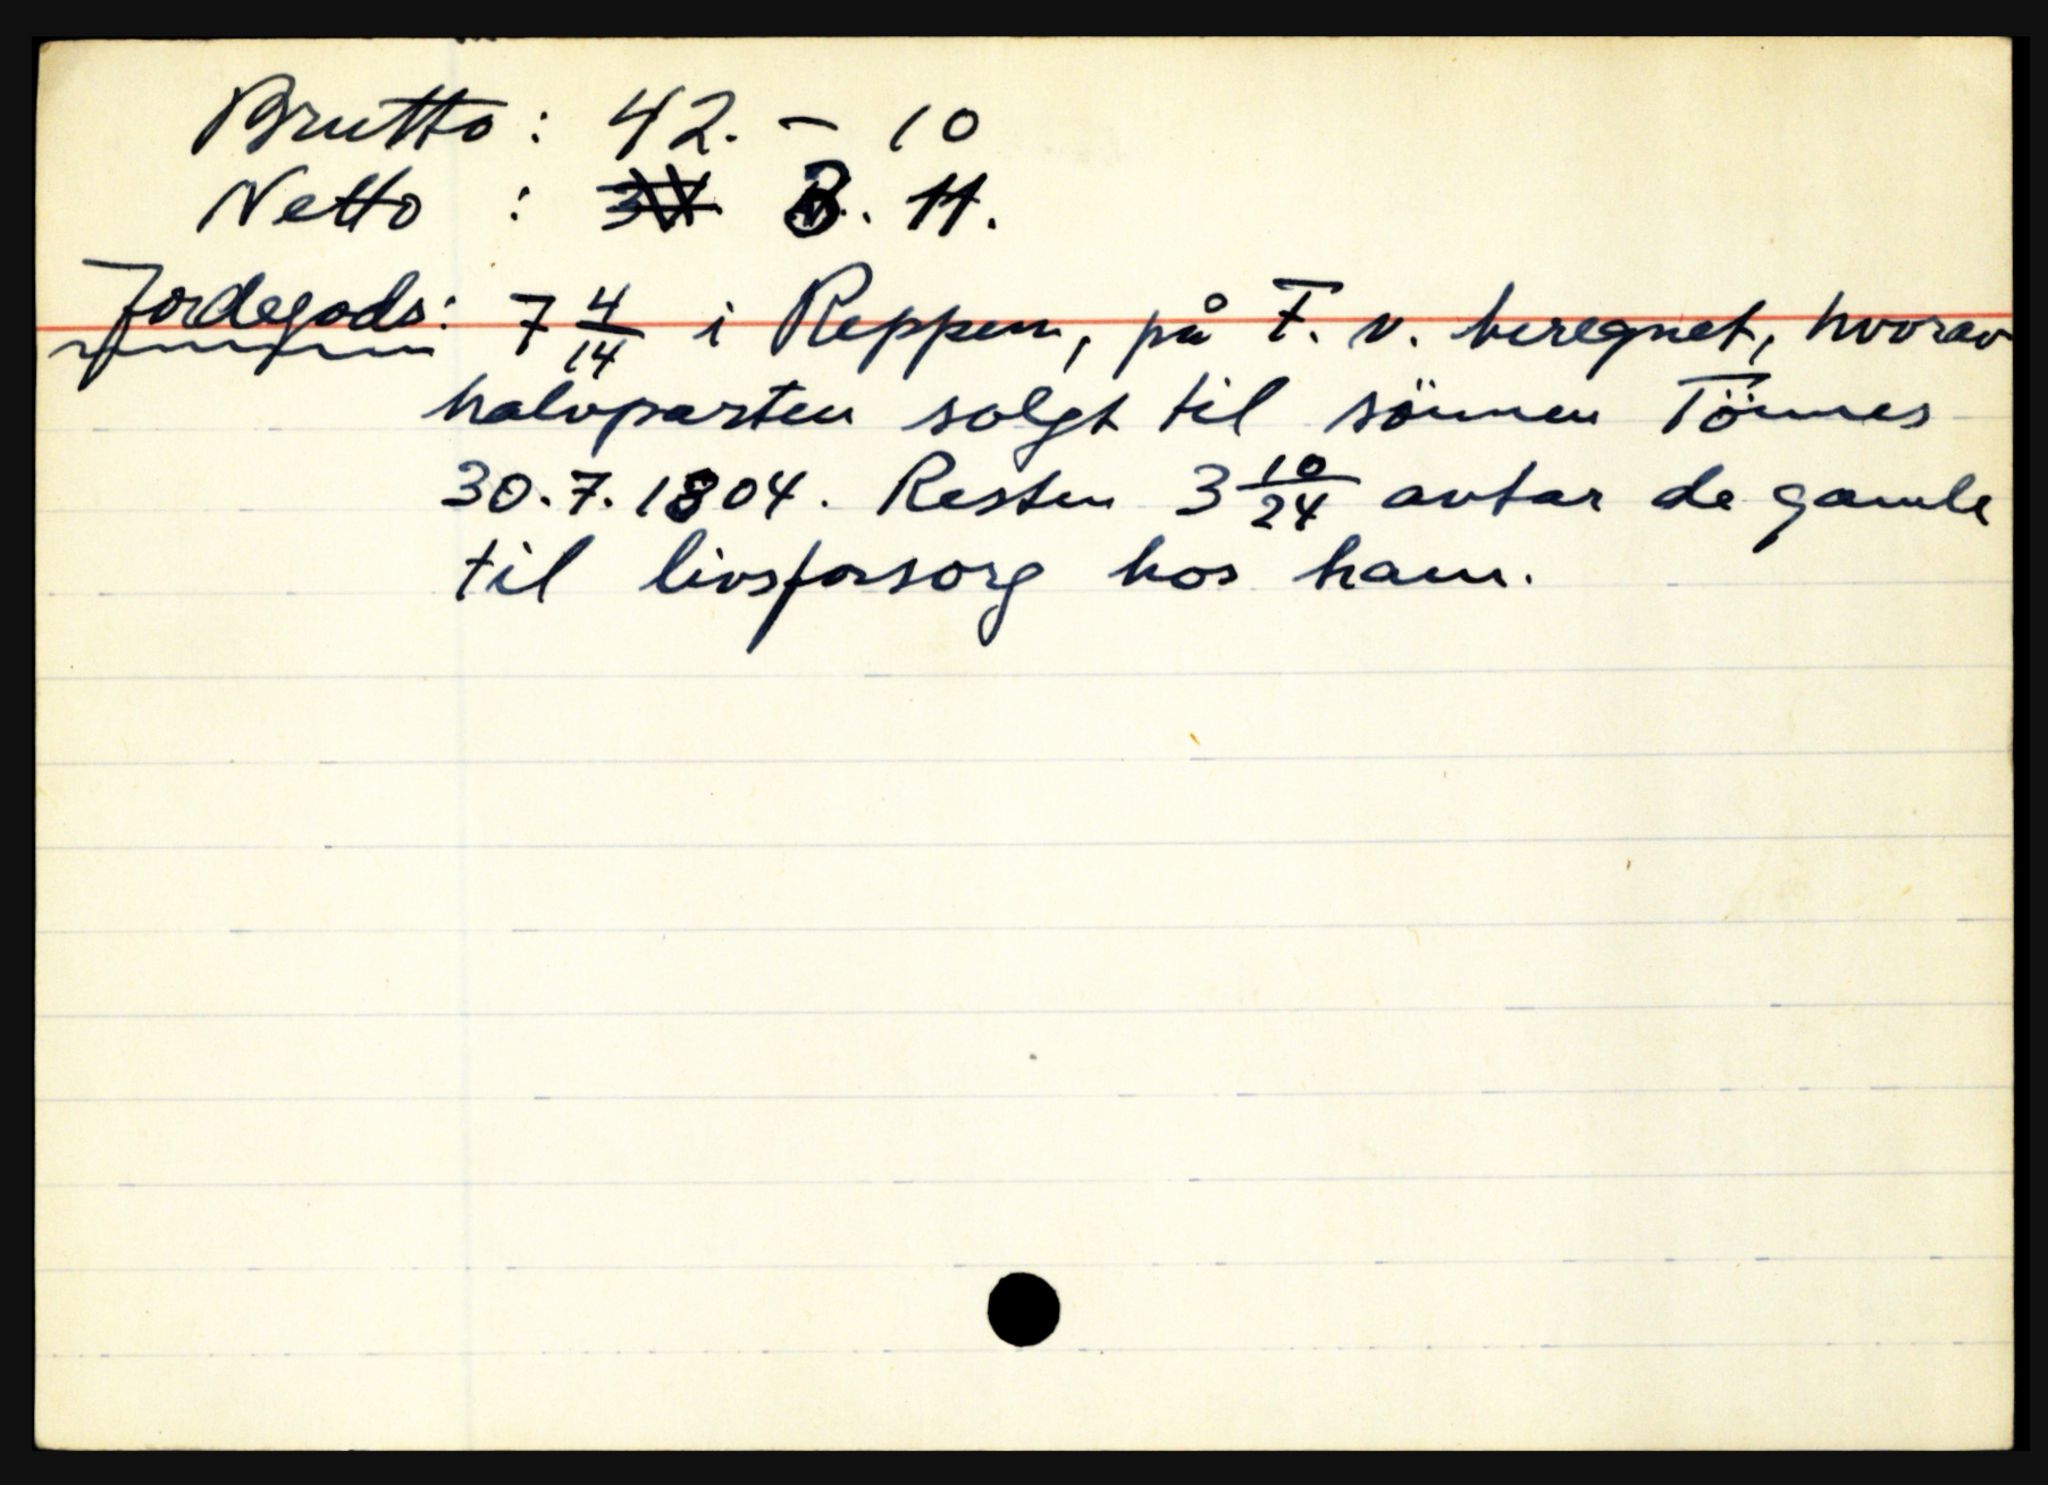 Brutto: 42. - 10
Netto : 3. 11.
Jordegods: 7 4/14 i Reppen, på F. v. beregnet, hvorav
halvparten solgt til sönnen Tönnes
30.7.1804. Resten 3 10/24 avtar de gamle
til livsforsorg hos ham.